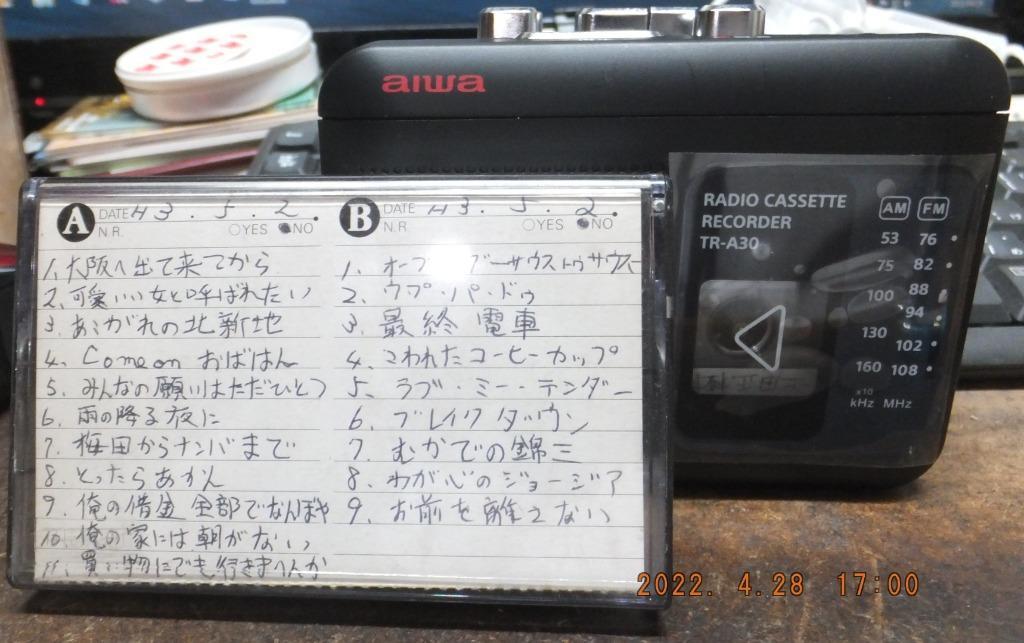 aiwa
RADIO CASSETTE
RECORDER
TR-A30
AM FM
53 76
75 82
100 88
94
130 102
160 108
x10
kHz MHz
A DATE H3.5.2.
N.R. ○YES ●NO
1. 大阪へ出て来てから
2. 可愛いい女と呼ばれたい
3. あこがれの北新地
4. Come on おばはん
5. みんなの願いはただひとつ
6. 雨の降る夜に
7. 梅田からナンバまで
8. とったらあかん
9. 俺の借金 全部でなんぼや
10. 俺の家には朝がない
11. 買い物にでも行きまへんか
B DATE H3.5.2.
N.R. ○YES ●NO
1. オー ブーサウストゥサウス
2. ウプ・パ・ドゥ
3. 最終電車
4. こわれたコーヒーカップ
5. ラブ・ミー・テンダー
6. ブレイクダウン
7. むかでの錦三
8. わが心のジョージア
9. お前を離さない
2022. 4.28 17:00